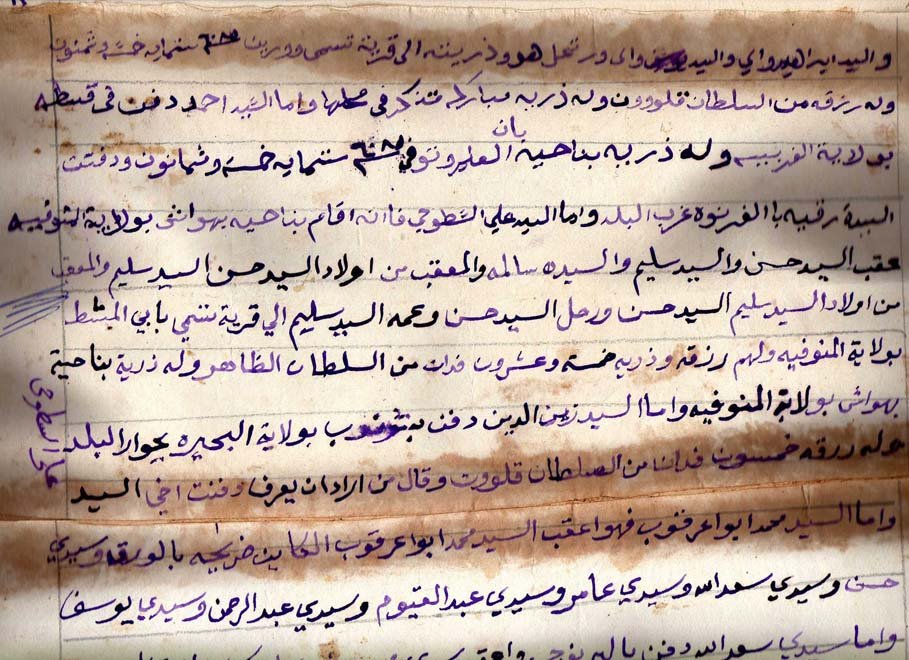 والسيد ابراهيم واي والسيد واي ورتحل هو وذريته الى قرية تسمى وورين ستمايه خمسة وثمنون
وله رزقه من السلطان قلوون وله ذريه مباركه تذكر فى محلها واما السيد احمد دفن فى
بولاية الغربييه وله ذريه بناحية وتوفى ستمايه خمسة وثمانون ودفنت
بان
السيدة رقيه با الفرنوة غرب البلد واما السيد علي السطوحي فاانه اقام بناحيه بهواشى بولاية المنوفيه
عقب السيد حسن والسيد سليم والسيده سالمه والمعقب من اولاد السيد حسن السيد سليم والمعقب
من اولاد السيد سليم السيد حسن ورحل السيد حسن وعمه السيد سليم الي قرية تنتمي بابي المشط
بولاية المنوفيه ولهم رزقه وذريه خمسة وعشرون فدان من السلطان الظاهر وله ذرية بناحية
بهواش بولاية المنوفيه واما السيد زين الدين دفن بولاية البحيره بجوار البلد
وله رزقه خمسون فدان من الصلطان قلووت وقال من اراد ان يعرف دفنت اخي السيد
واما السيد محمد ابوا عرقوب فهوا عقب السيد محمد ابوا عرقوب الكاين ضريحه بالورقه وسيدي
حسن وسيدي سعد الله وسيدي عامر وسيدي عبد القيوم وسيدي عبد الرحمن وسيدي يوسف
واما سيدي سعد الله دفن
على السطوحى